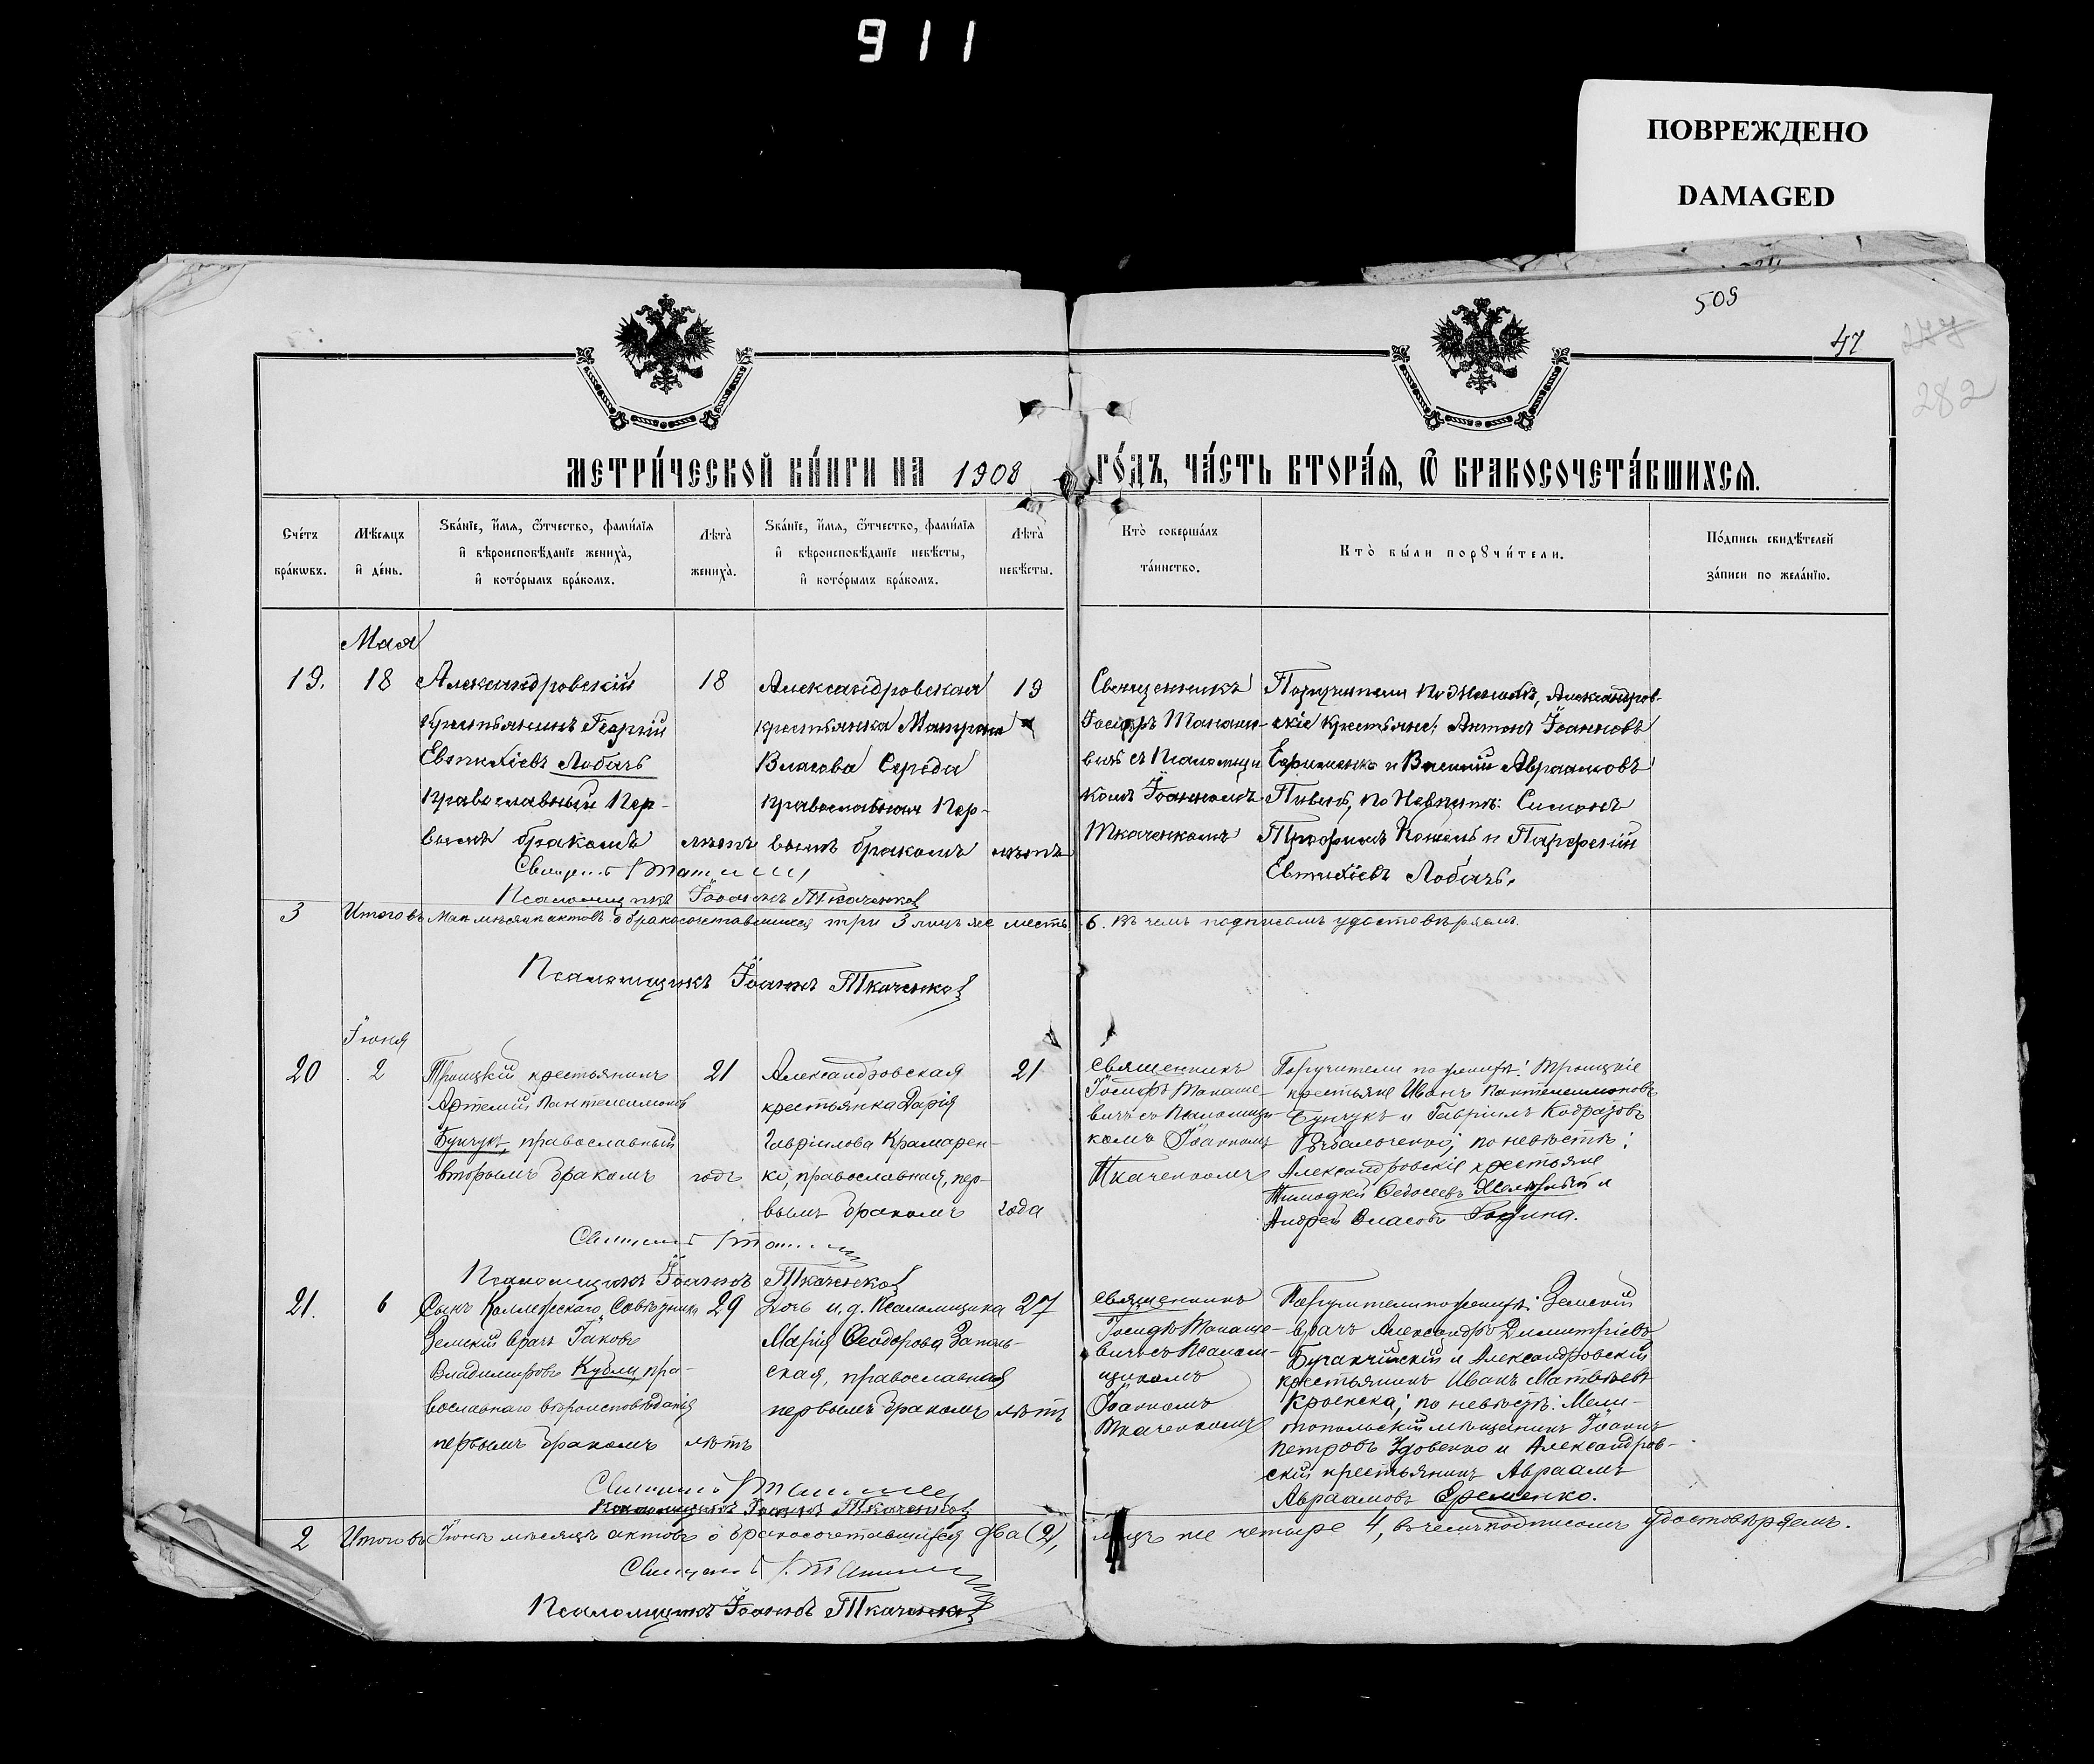 911
ПОВРЕЖДЕНО
DAMAGED
509
47
277
282
МЕТРИ́ЧЕСКОЙ КНИ́ГИ НА 1908 ГО́ДЪ, ЧА́СТЬ ВТОРА́Я, Ѿ БРАКОСОЧЕТА́ВШИХСЯ.
Сче́тъ бра́кѡвъ.
Мѣ́сяцъ и҆ де́нь.
Ѕва́нїе, и҆́мя, ѻ҆́тчество, фами́лїя и҆ вѣроисповѣ́данїе жениха̀, и҆ кото́рымъ бра́комъ.
Лѣта̀ жениха̀.
Ѕва́нїе, и҆́мя, ѻ҆́тчество, фами́лїя и҆ вѣроисповѣ́данїе невѣ́сты, и҆ кото́рымъ бра́комъ.
Лѣта̀ невѣ́сты.
Кто̀ соверша́лъ та́инство.
Кто̀ бы́ли порꙋчи́тели.
По́дпись свидѣ́телей за́писи по жела́нїю.
Мая
19.
18
Александровскій
крестьянинъ Георгій
Евтихіевъ Лобачъ
православный пер-
вымъ бракомъ
18
лѣтъ
Александровская
крестьянка Матрона
Власова Середа
православная пер-
вымъ бракомъ
19
лѣтъ
Священникъ
Іосифъ Манаше-
вичъ съ Псаломщи
комъ Іоанномъ
Ткаченкомъ
Поручители по Женихѣ, Александров-
скіе крестьяне: Антонъ Іоанновъ
Ефименко и Василій Авраамовъ
Пивень, по Невѣстѣ: Симонъ
Трофимовъ и Парфеній
Евтихіевъ Лобачъ.
Священникъ
Псаломщикъ Іоаннъ Ткаченко
3
Итого въ Маѣ мѣсяцѣ актовъ о бракосочетавшихся три 3 лицъ же шесть 6. Въ чемъ подписомъ удостовѣряемъ.
Псаломщикъ Іоаннъ Ткаченко
Іюня
20
2
Троицкій крестьянинъ
Артемій Пантелеимоновъ
Бунчукъ, православный
вторымъ бракомъ
21
годъ
Александровская
крестьянка Дарія
Гавріилова Крамарен-
ко, православная, пер-
вымъ бракомъ
21
года
священникъ
Іосифъ Манаше-
вичъ съ Псаломщи-
комъ Іоанномъ
Ткаченкомъ
Поручители по женихѣ: Троицкіе
крестьяне Иванъ Пантелеимоновъ
Бунчукъ и Гавріилъ Кодратовъ
по невѣстѣ:
Александровскіе крестьяне
Тимофей Федосеевъ и
Андрей Власовъ
Священникъ
Псаломщикъ Іоаннъ Ткаченко
21.
6
Сынъ Коллежскаго Совѣтника
Земскій врачъ Іаковъ
Владимировъ Кубли, пра-
вославнаго вѣроисповѣданія
первымъ бракомъ
29
лѣтъ
Дочь и.д. Псаломщика
Марія Ѳеодорова Заполь-
ская, православная
первымъ бракомъ
27
лѣтъ
священникъ
Іосифъ Манаше-
вичъ съ Псалом-
щикомъ
Іоанномъ
Ткаченкомъ
Поручители по женихѣ: Земскій
врачъ Александръ Димитріевъ
и Александровскій
крестьянинъ Иванъ Матвѣевъ
по невѣстѣ: Мели-
топольскій мѣщанинъ Іоаннъ
Петровъ Удовенко и Александров-
скій крестьянинъ Авраамъ
Авраамовъ Ефименко.
Священникъ
Псаломщикъ Іоаннъ Ткаченко
2
Итого въ Іюнѣ мѣсяцѣ актовъ о бракосочетавшихся два (2), лицъ же четыре 4, въ чемъ подписомъ удостовѣряемъ.
Священникъ
Псаломщикъ Іоаннъ Ткаченко